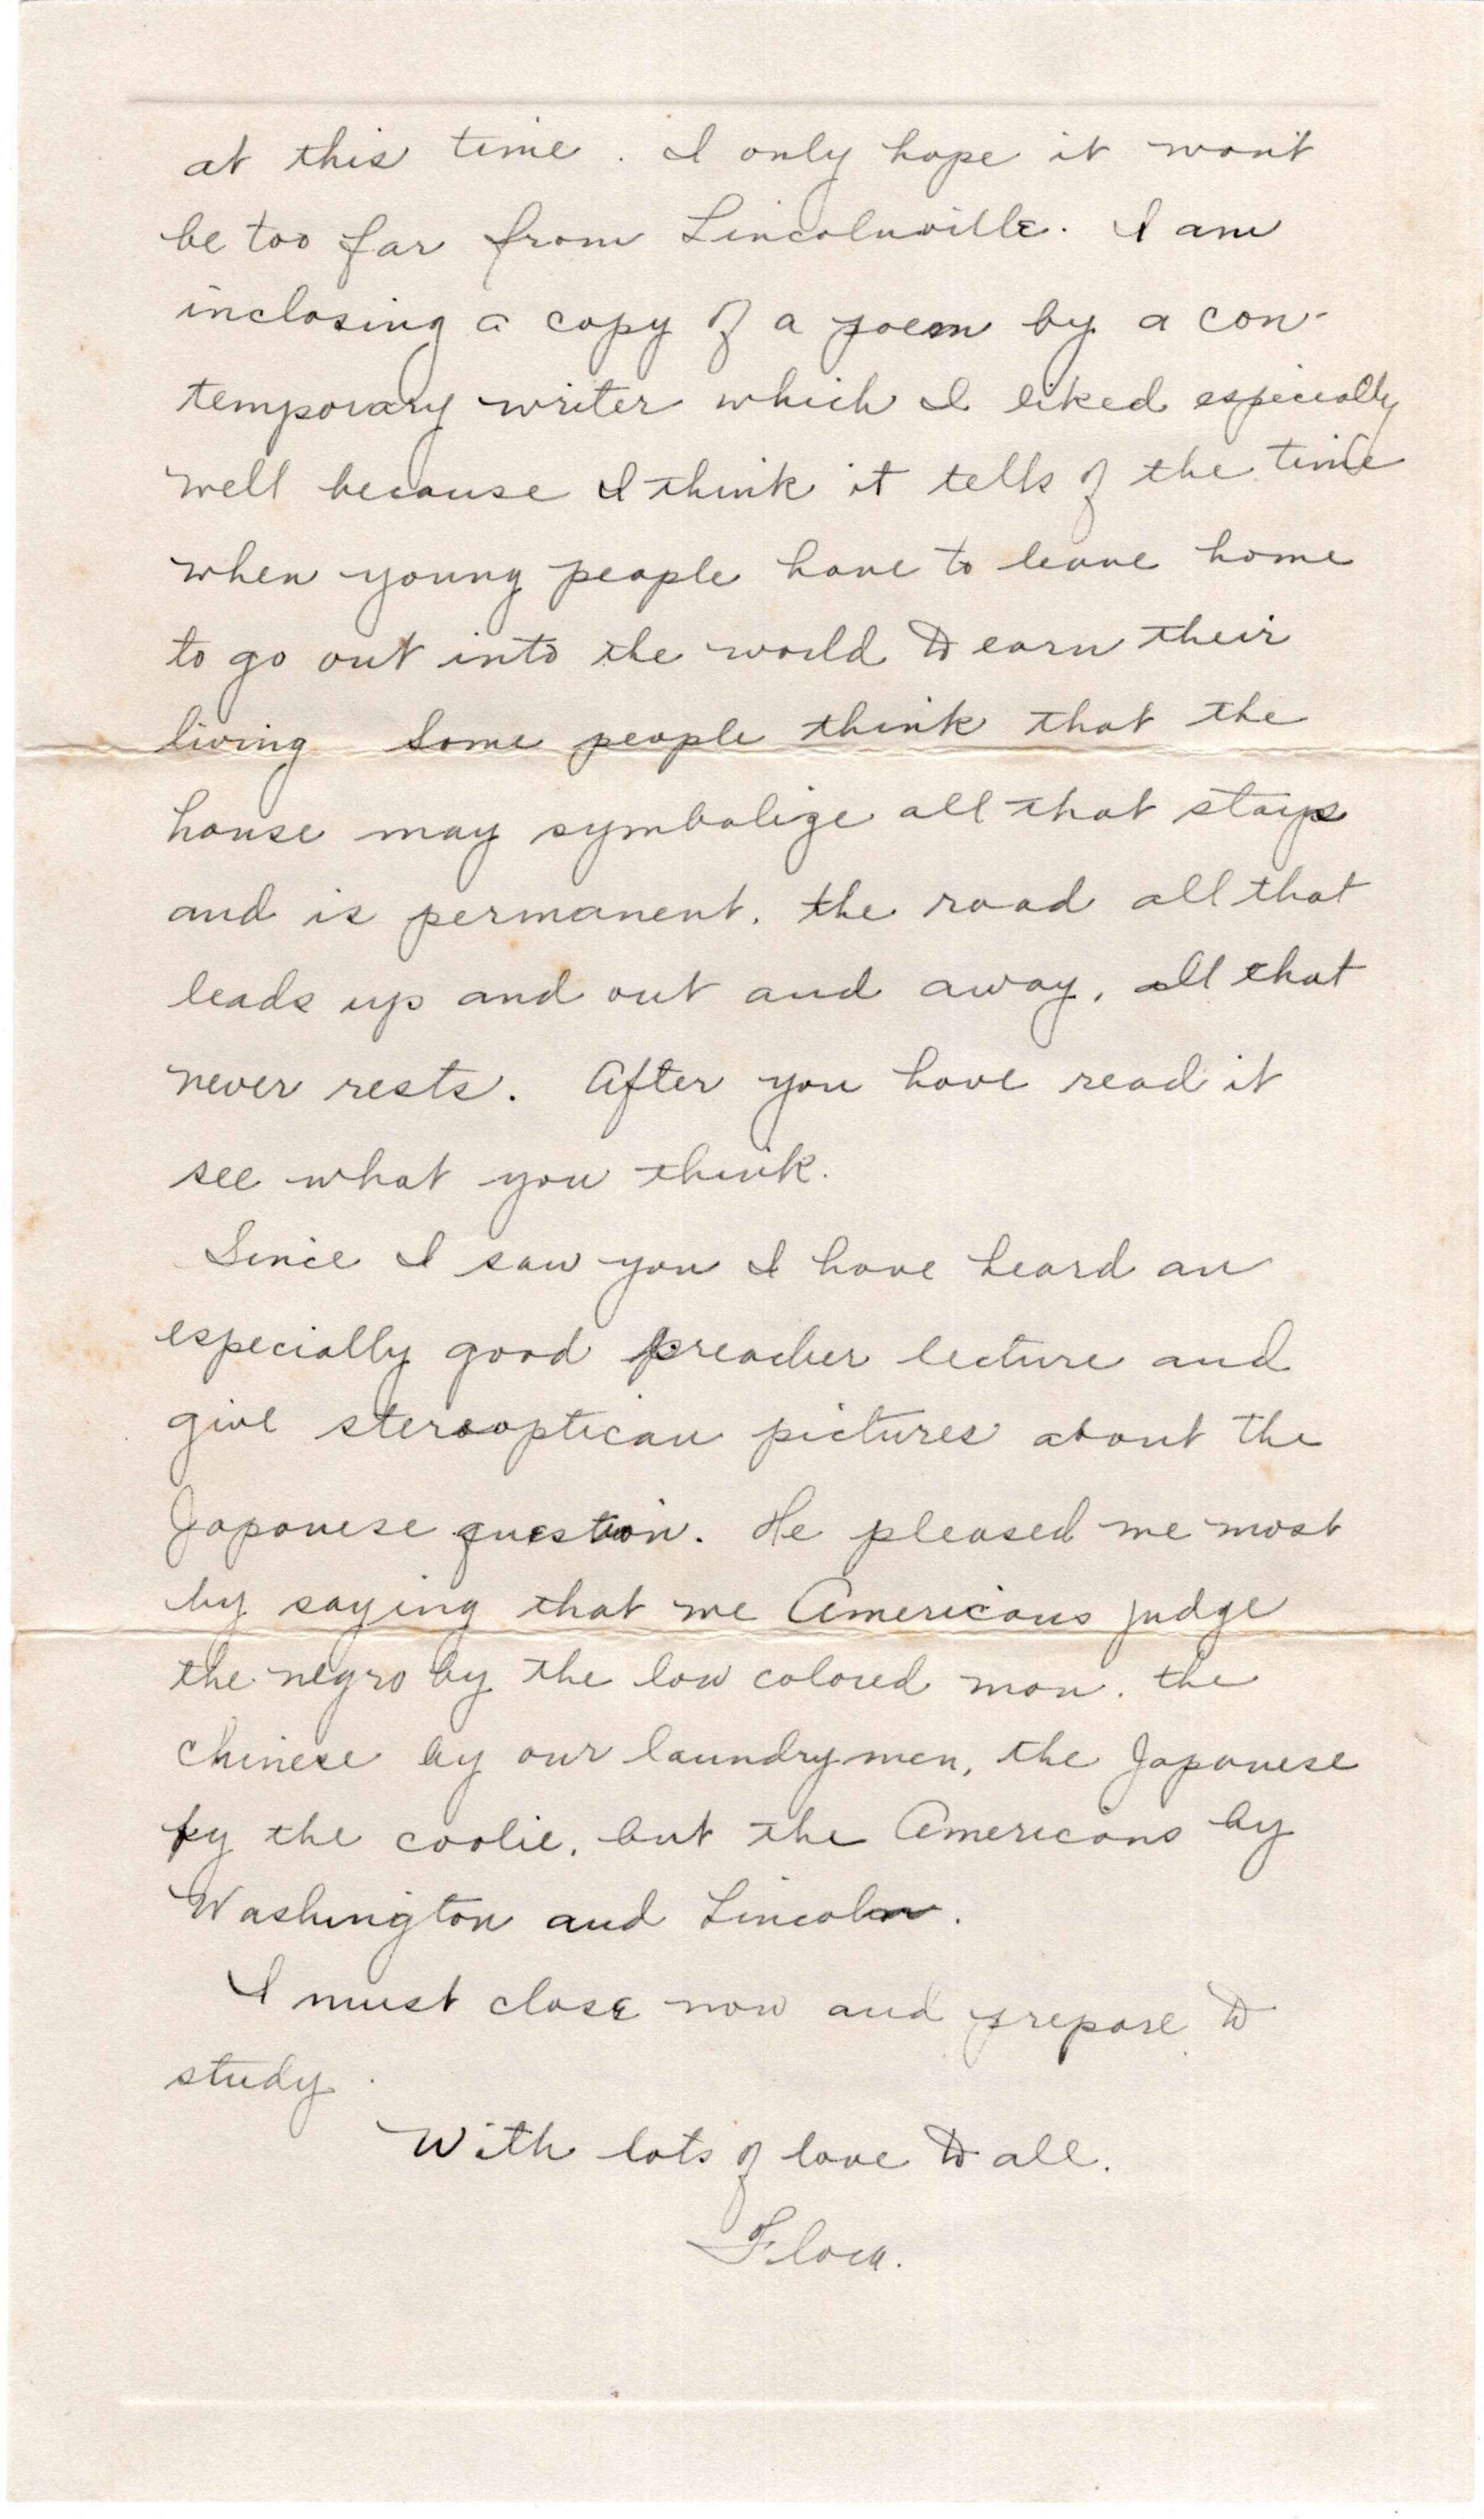 at this time. I only hope it won't
be too far from Lincolnville. I am
inclosing a copy of a poem by a con-
temporary writer which I liked especially
well because I think it tells of the time
when young people have to leave home
to go out into the world to earn their
living Some people think that the
house may symbolize all that stays
and is permanent, the road all that
leads up and out and away, all that
never rests. After you have read it
see what you think.
Since I saw you I have heard an
especially good preacher lecture and
give steroopticau pictures about the
Japanese question. He pleased me most
by saying that we Americans judge
the negro by the low colored man, the
Chinese by our laundrymen, the Japanese
by the coolie, but the Americans by
Washington and Lincoln.
I must close now and prepare to
study.
With lots of love to all.
Flora.